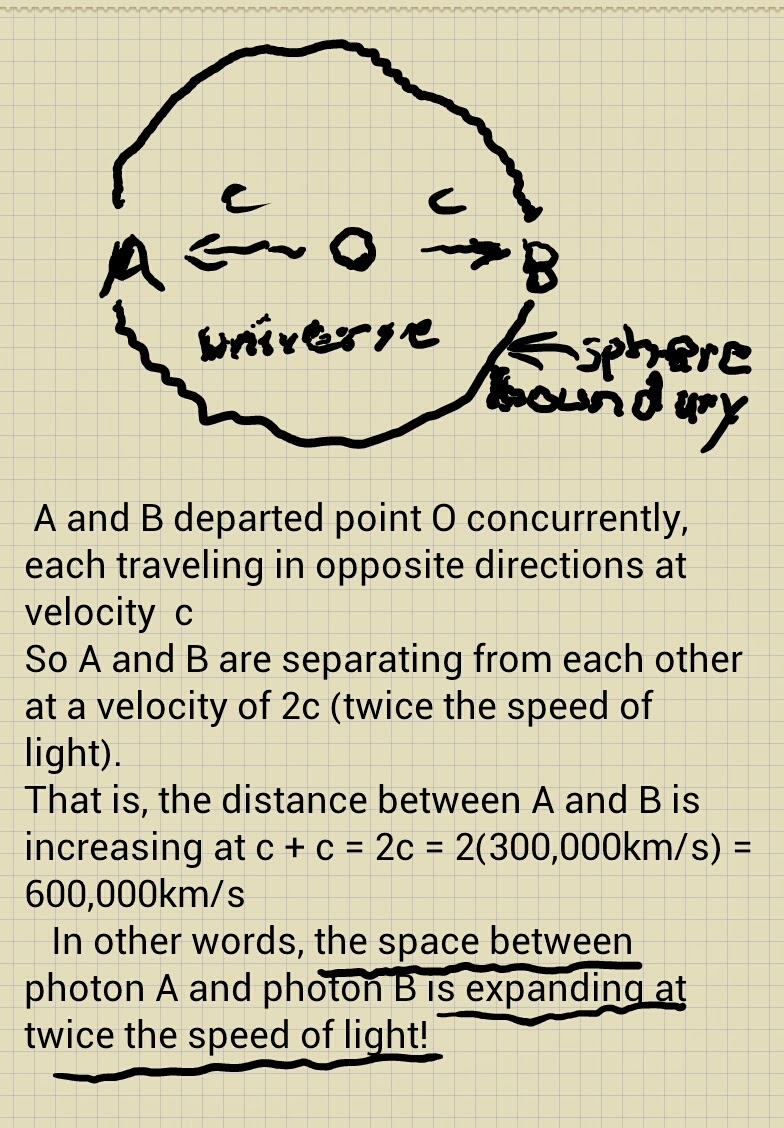 c c
A O B
universe
sphere
boundary
A and B departed point O concurrently,
each traveling in opposite directions at
velocity c
So A and B are separating from each other
at a velocity of 2c (twice the speed of
light).
That is, the distance between A and B is
increasing at c + c = 2c = 2(300,000km/s) =
600,000km/s
In other words, the space between
photon A and photon B is expanding at
twice the speed of light!